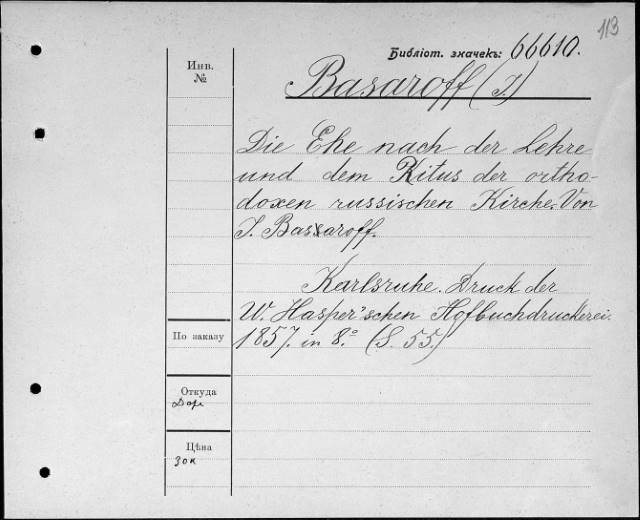 113
Библіот. значекъ: 66610.
Инв.
№
Basaroff (J.)
Die Ehe nach der Lehre
und dem Ritus der ortho-
doxen russischen Kirche. Von
J. Basxaroff.
Karlsruhe. Druck der
W. Hasper'schen Hofbuchdruckerei.
1857. in 8.° (S. 55.)
По заказу
Откуда
Дар
Цѣна
30 к